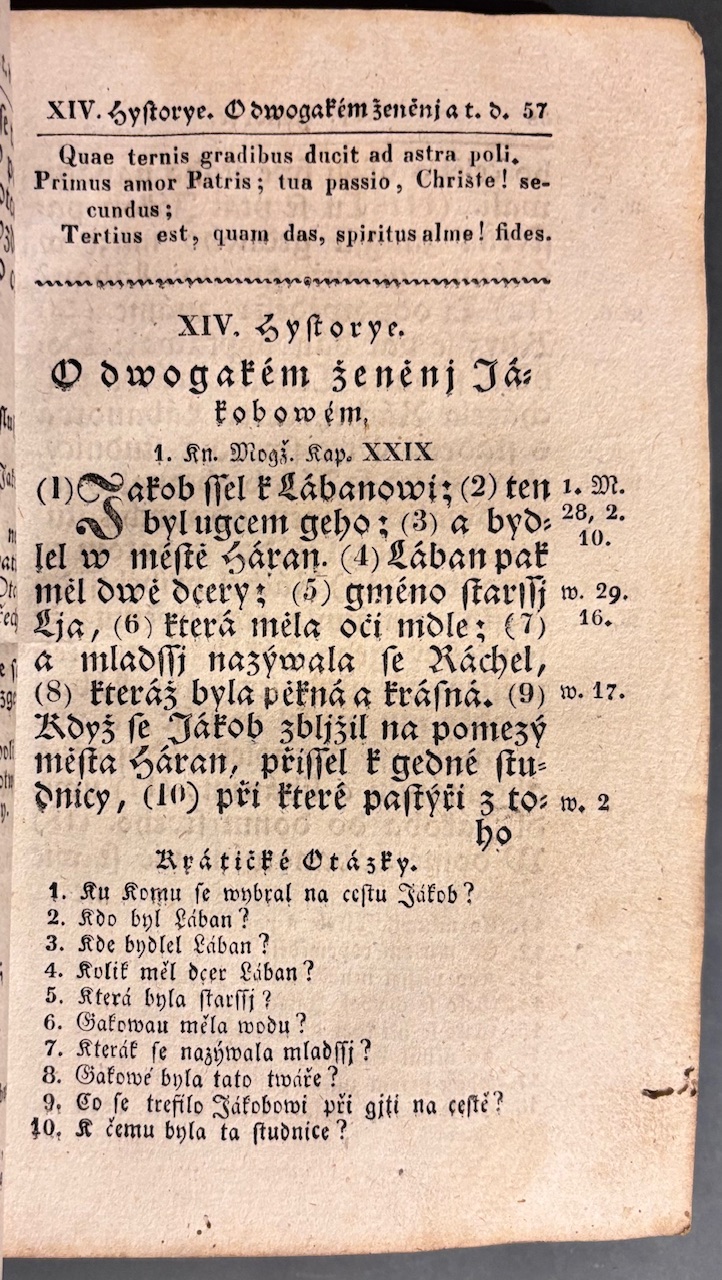 XIV. Hystorye. O dwogakém ženěnj a t. d. 57
Quae ternis gradibus ducit ad astra poli.
Primus amor Patris; tua passio, Christe! se-
cundus;
Tertius est, quam das, spiritus alme! fides.
XIV. Hystorye.
O dwogakém ženěnj Já-
kobowém,
1. Kn. Mogž. Kap. XXIX
(1) Jakob ssel k Lábanowi; (2) ten 1. M.
byl ugcem geho; (3) a byd- 28, 2.
10.
lel w městě Háran. (4) Lában pak
měl dwě dcery; (5) gméno starssj w. 29.
Lja, (6) která měla oči mdle; (7) 16.
a mladssj nazýwala se Ráchel,
(8) kteráž byla pěkná a krásná. (9) w. 17.
Když se Jákob zbljžil na pomezý
města Háran, přissel k gedné stu-
dnicy, (10) při které pastýři z to- w. 2
ho
Krátičké Otázky.
1. Ku Komu se wybral na cestu Jákob?
2. Kdo byl Lában?
3. Kde bydlel Lában?
4. Kolik měl dcer Lában?
5. Která byla starssj?
6. Gakowau měla wodu?
7. Kterák se nazýwala mladssj?
8. Gakowé byla tato twáře?
9. Co se trefilo Jákobowi při gjti na cestě?
10. K čemu byla ta studnice?